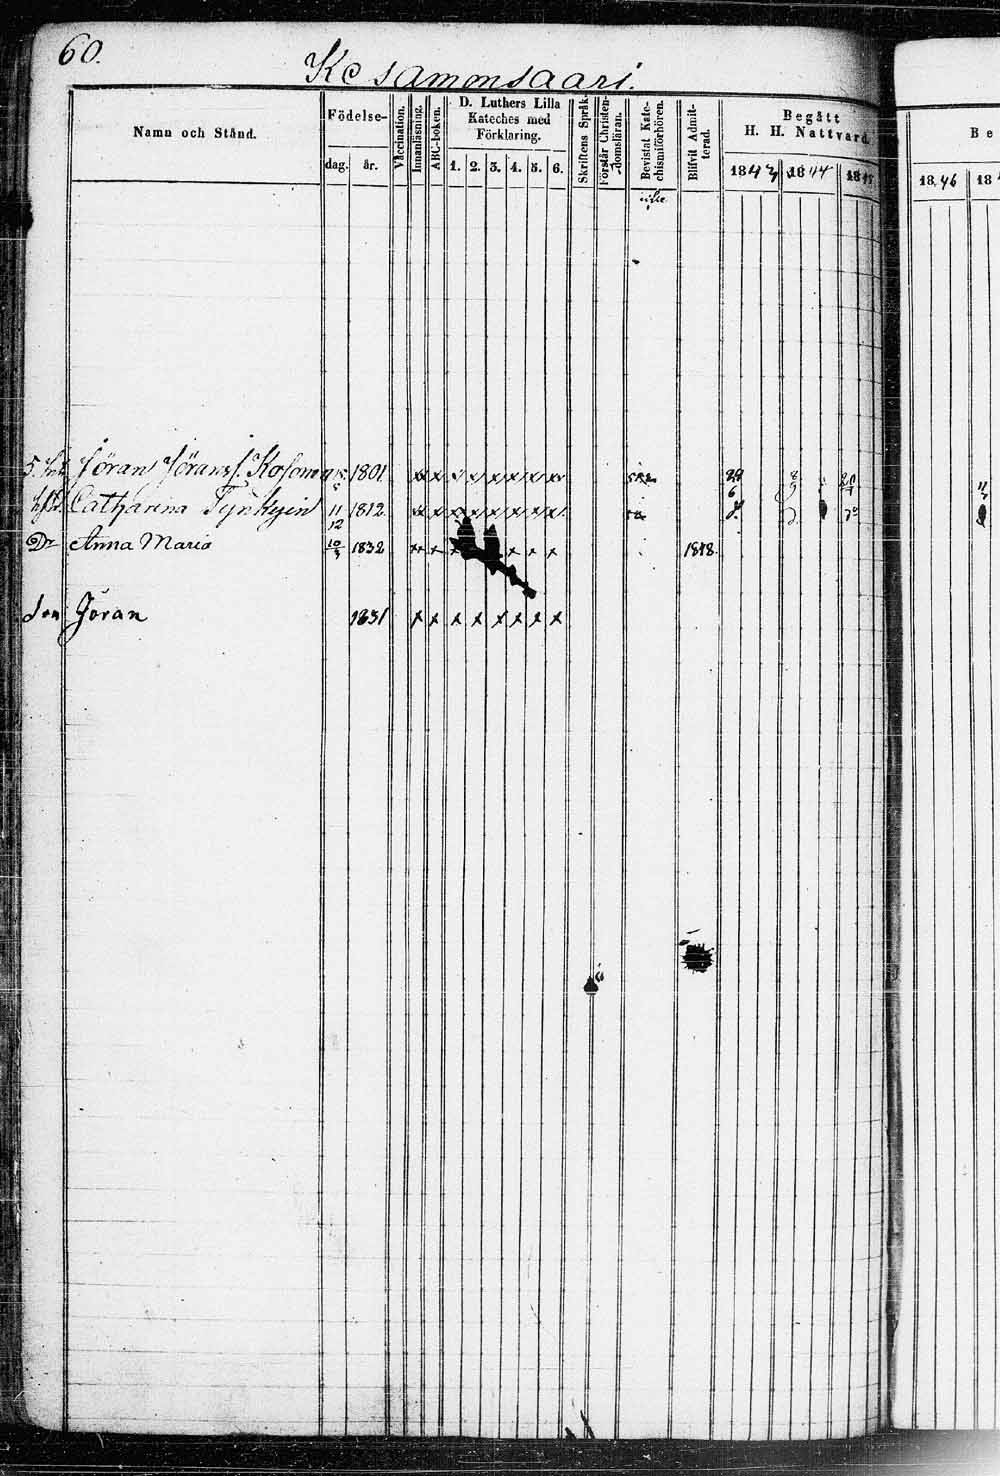 60.
Kesamonsaari.
Namn och Stånd.
Födelse-
dag. år.
Vaccination.
Innanläsning.
ABC-boken.
D. Luthers Lilla
Kateches med
Förklaring.
1. 2. 3. 4. 5. 6.
Skriftens Språk.
Förstår Christen-
domsläran.
Bevistat Kate-
chismiförhören.
Blifvit Admit-
terad.
Begått
H. H. Nattvard.
1843 1844 1845
Be
1846 18
Jöran Göranss. 1801 x x x x x x x x
Catharina Tynkyin 11/12 1812 x x x x x x x x
Dr Anna Maria 10/3 1832 x x x x x x 1848.
Son Jöran 1831 x x x x x x x x